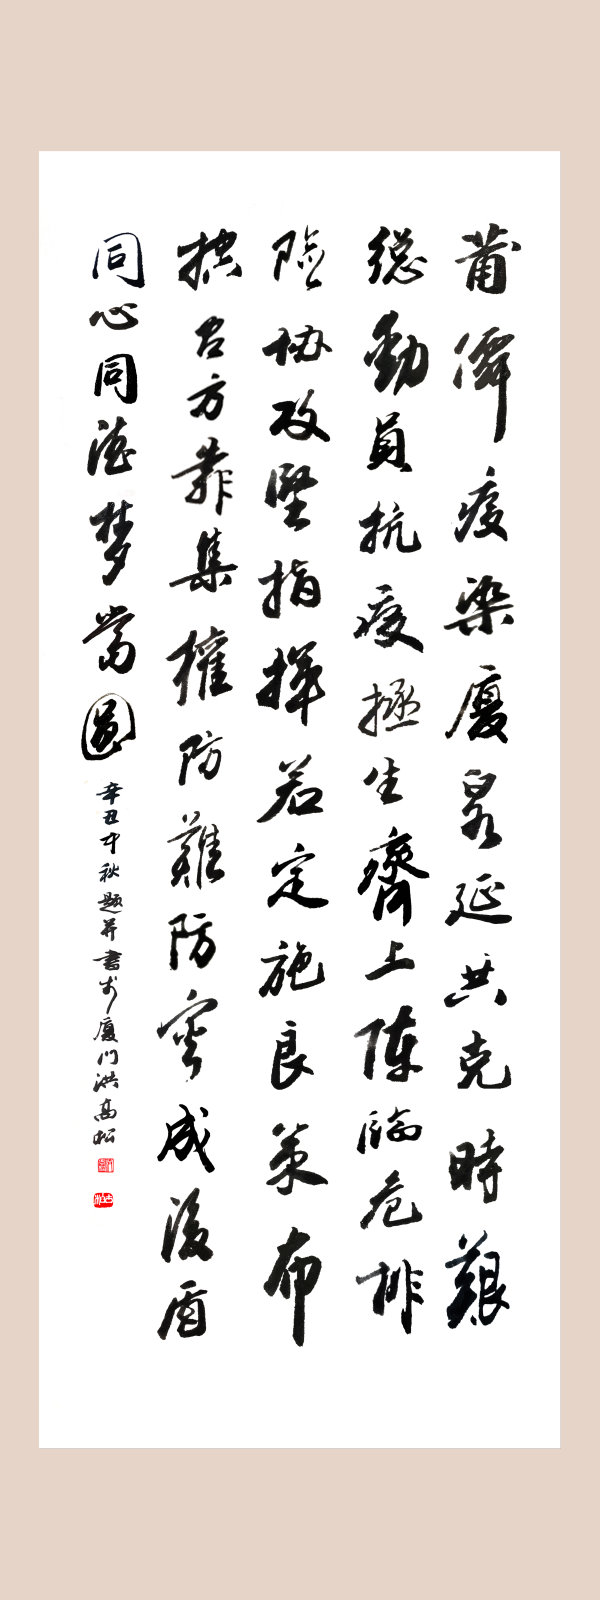 莆僊疫染廈泉延共克時艱
總動員抗疫拯生齊上陣臨危排
險協攻堅指揮若定施良策布
控方靠集權防難防成後盾
同心同德梦當圓
辛丑中秋題并書於廈門洪高松